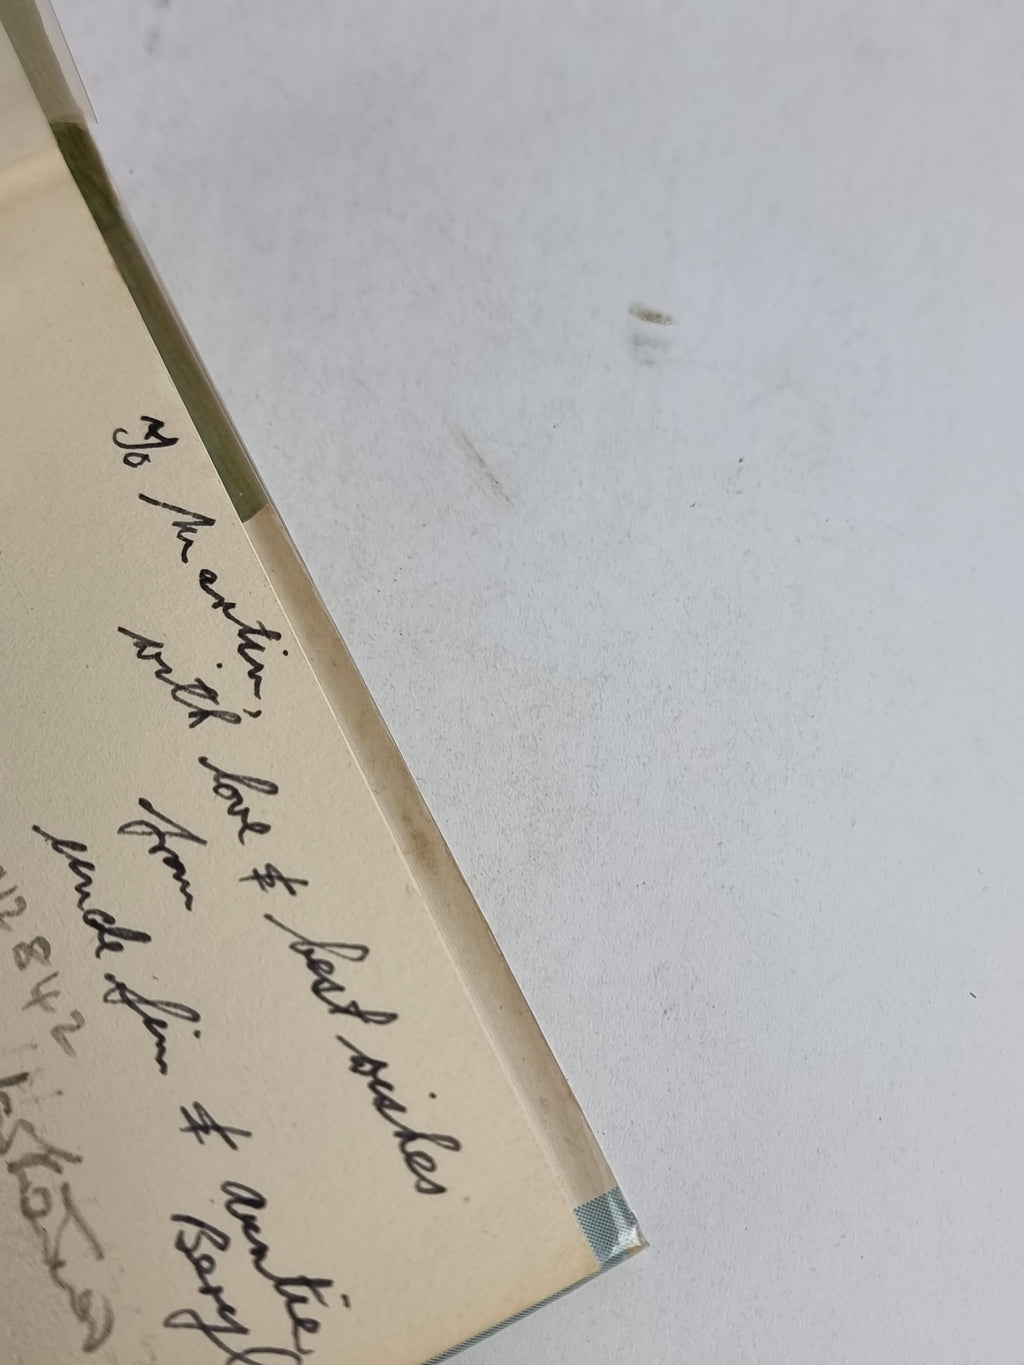 To Martin,
with love & best wishes
from
uncle Jim & auntie
Beryl
2842